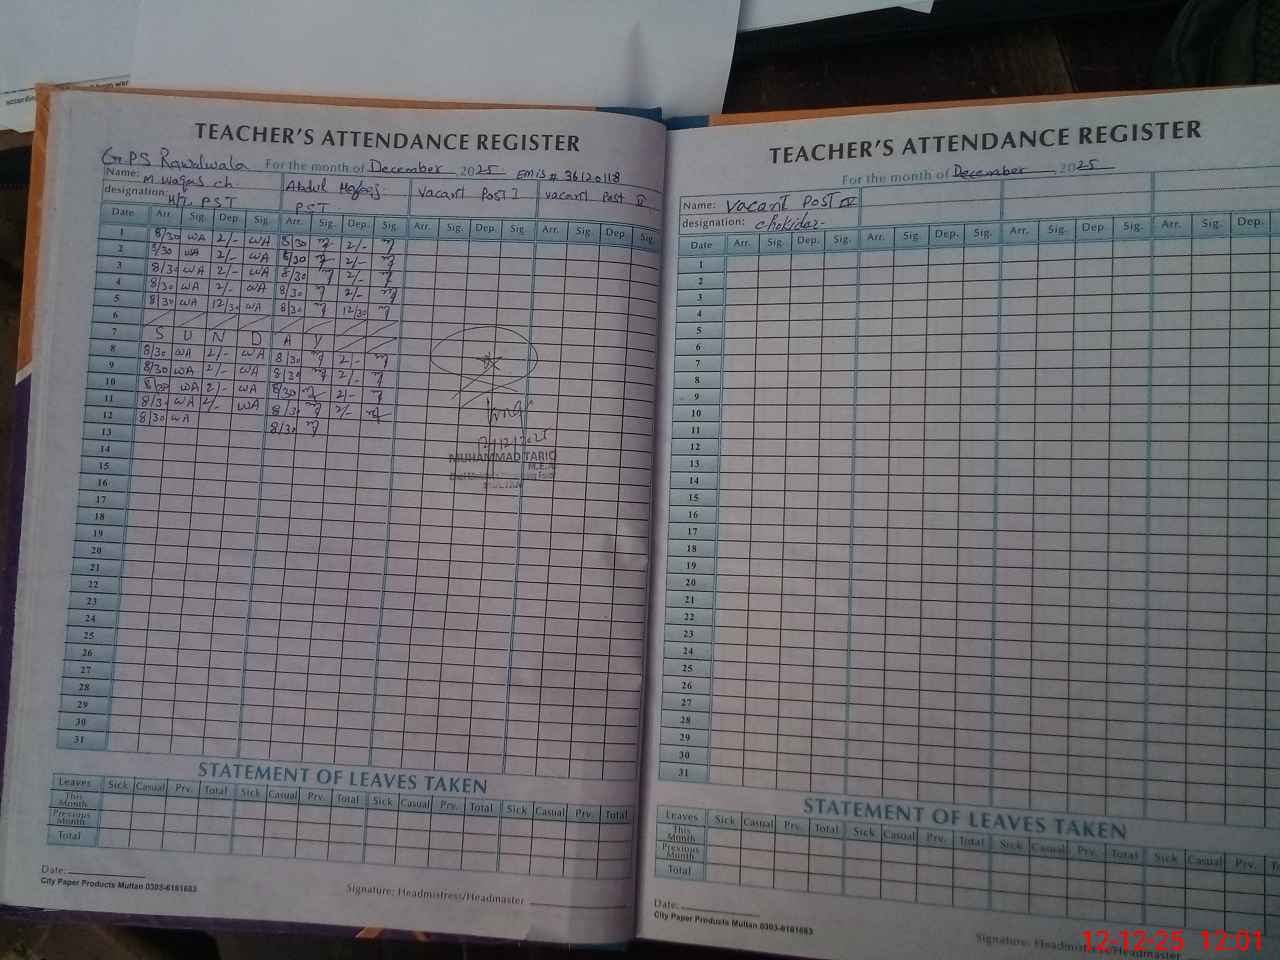 TEACHER'S ATTENDANCE REGISTER
G.P.S Rawalwala For the month of December 2025 Emis # 36120118
Name: M. Waqas ch. Abdul Vacant Post I vacant Post II
designation: H/T, PST PST
Date Arr. Sig. Dep. Sig. Arr. Sig. Dep. Sig. Arr. Sig. Dep. Sig. Arr. Sig. Dep. Sig.
1 8/30 WA 2/- WA 8/30 2/-
2 8/30 WA 2/- WA 8/30 2/-
3 8/30 WA 2/- WA 8/30 2/-
4 8/30 WA 2/- WA 8/30 2/-
5 8/30 WA 12/30 WA 8/30 12/30
6
7 S U N D A Y
8 8/30 WA 2/- WA 8/30 2/-
9 8/30 WA 2/- WA 8/30 2/-
10 WA 2/- WA 8/30 2/-
11 8/30 WA 2/- WA 8/30 2/-
12 8/30 WA 8/30
13
14
15
16
17
18
19
20
21
22
23
24
25
26
27
28
29
30
31
12/12/2025
MUHAMMAD TARIQ
M.E.A
STATEMENT OF LEAVES TAKEN
Leaves Sick Casual Prv. Total Sick Casual Prv. Total Sick Casual Prv. Total Sick Casual Prv. Total
This Month
Previous Month
Total
Date:
City Paper Products Multan 0303-6161683
Signature: Headmistress/Headmaster
TEACHER'S ATTENDANCE REGISTER
For the month of December 2025
Name: Vacant Post IV
designation: Chokidar
Date Arr. Sig. Dep. Sig. Arr. Sig. Dep. Sig. Arr. Sig. Dep. Sig. Arr. Sig. Dep.
1
2
3
4
5
6
7
8
9
10
11
12
13
14
15
16
17
18
19
20
21
22
23
24
25
26
27
28
29
30
31
STATEMENT OF LEAVES TAKEN
Leaves Sick Casual Prv. Total Sick Casual Prv. Total Sick Casual Prv. Total Sick Casual Prv.
This Month
Previous Month
Total
Date:
City Paper Products Multan 0303-6161683
Signature: Headmistress/Headmaster
12-12-25 12:01